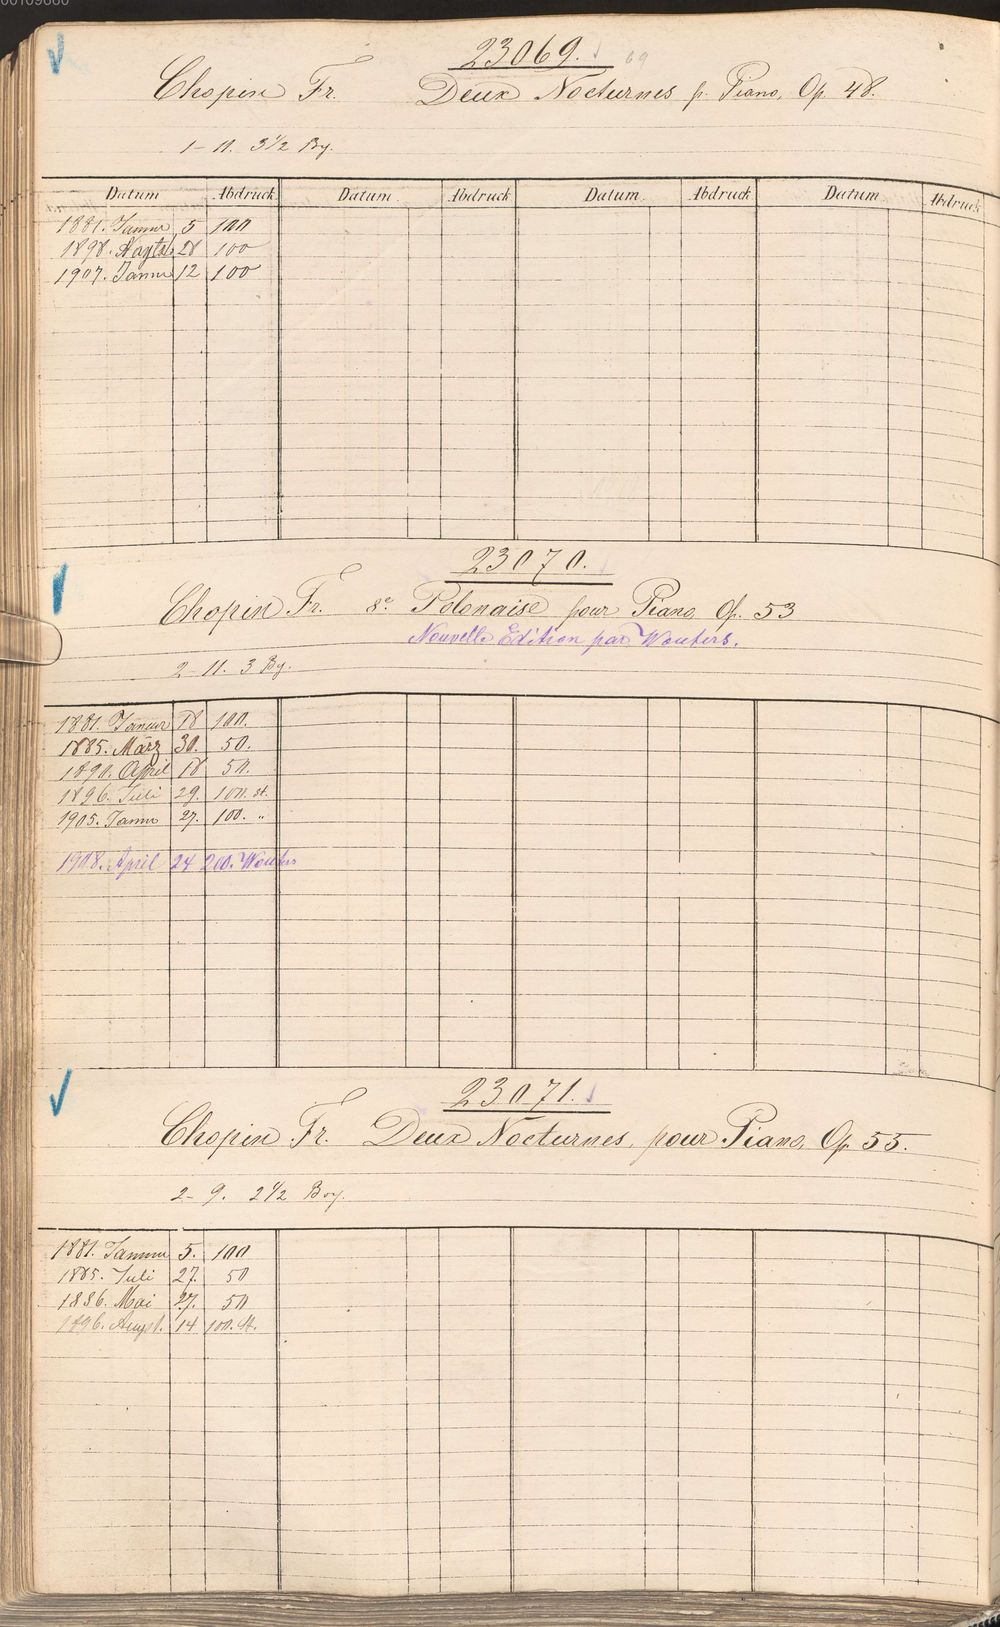 00109660
23069. 69
Chopin Fr. Deux Nocturnes p. Piano, Op 48.
1-11. 3 1/2 Bg.
Datum Abdruck Datum. Abdruck Datum. Abdruck Datum. Abdruck
1881. Januar 5 100
1898. 28 100
1907. Januar 12 100
23070.
Chopin Fr. 8e Polonaise pour Piano, Op. 53
Nouvelle Edition par Wouters.
2-11. 3 Bg.
1881. Januar 18 100.
1885. März 30. 50.
1890. April 18 50.
1896. Juli 29. 100. st.
1905. Januar 27. 100. "
1908. April 24 200. Wouters
23071.
Chopin Fr. Deux Nocturnes, pour Piano, Op. 55.
2-9. 2 1/2 Bog.
1881. Januar 5. 100
1885. Juli 27. 50
1886. Mai 27. 50
1896. August. 14. 100. st.